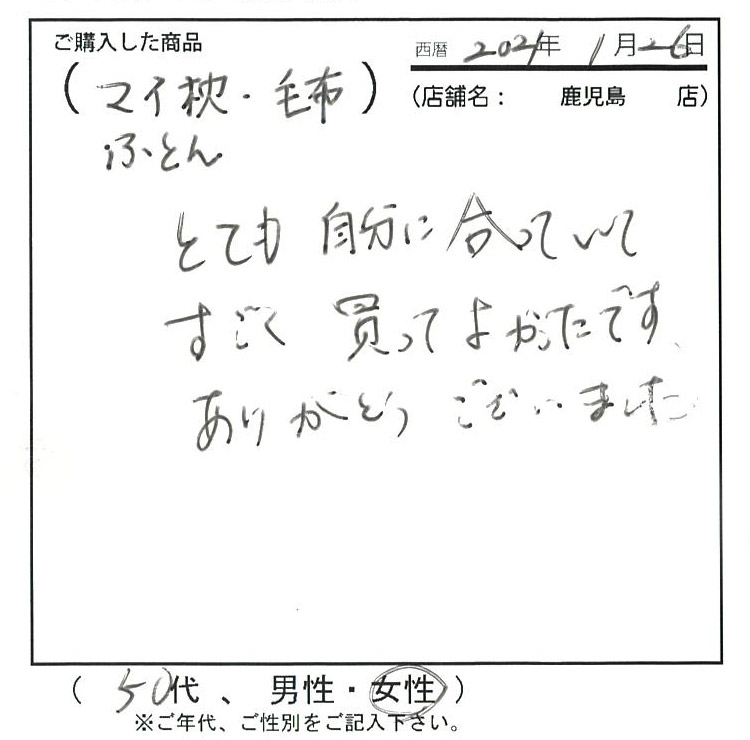 ご購入した商品
西暦 2021年 1月26日
(マイ枕・毛布)
(店舗名: 鹿児島 店)
ふとん
とても 自分に 合っていて
すごく 買ってよかったです。
ありがとう ございました
( 50代 、 男性・女性 )
※ご年代、ご性別をご記入下さい。